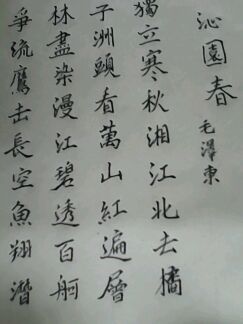 沁園春
毛澤東
獨立寒秋湘江北去橘
子洲頭看萬山紅遍層
林盡染漫江碧透百舸
爭流鷹击長空魚翔潛